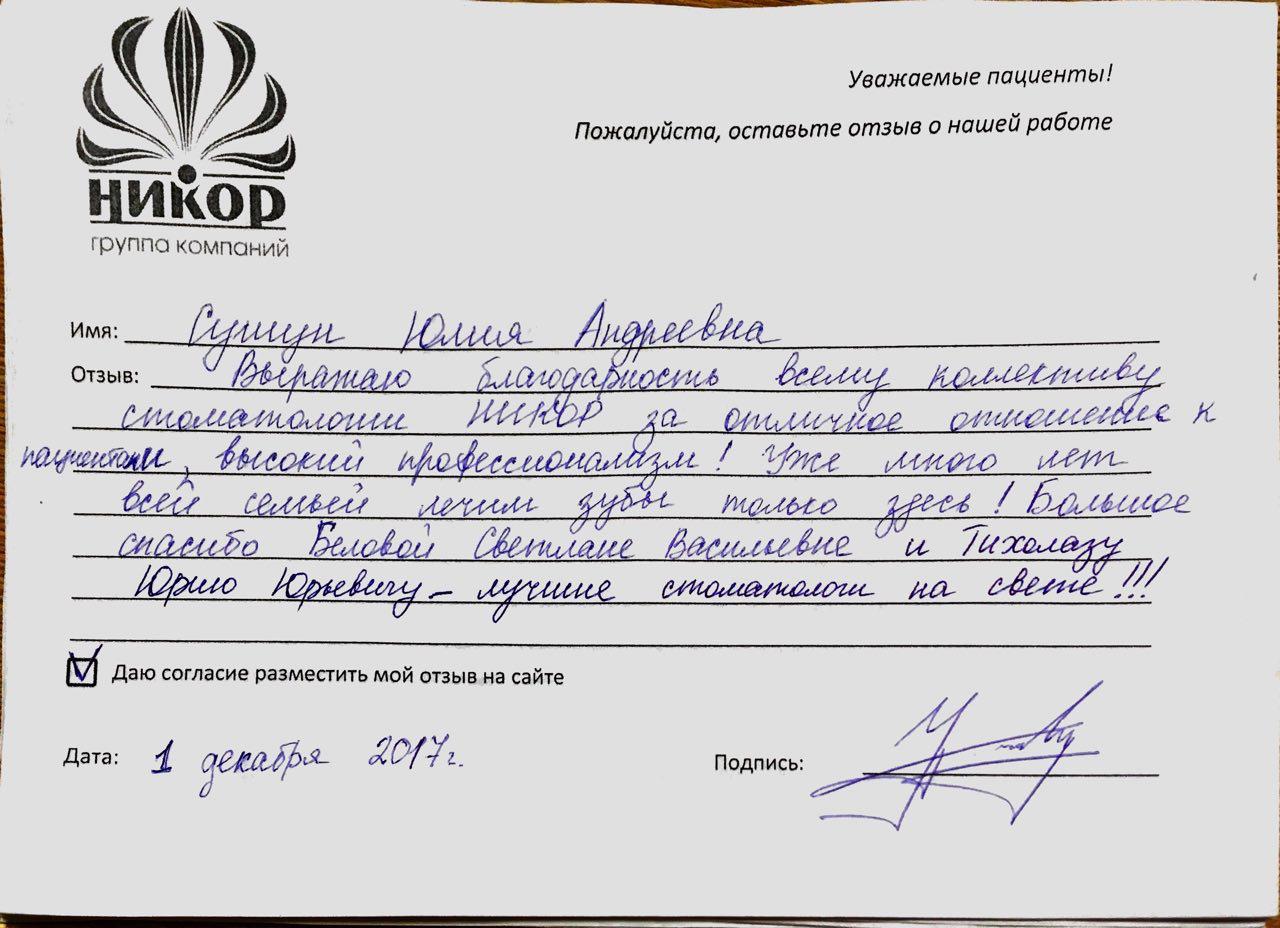 НИКОР
группа компаний
Уважаемые пациенты!
Пожалуйста, оставьте отзыв о нашей работе
Имя: Юлия Андреевна
Отзыв: Выражаю благодарность всему коллективу
стоматологии НИКОР за отличное отношение к
пациентами, высокий профессионализм! Уже много лет
всей семьёй лечим зубы только здесь! Большое
спасибо Беловой Светлане Васильевне и Тихолазу
Юрию Юрьевичу – лучшие стоматологи на свете!!!
Даю согласие разместить мой отзыв на сайте
Дата: 1 декабря 2017г.
Подпись: